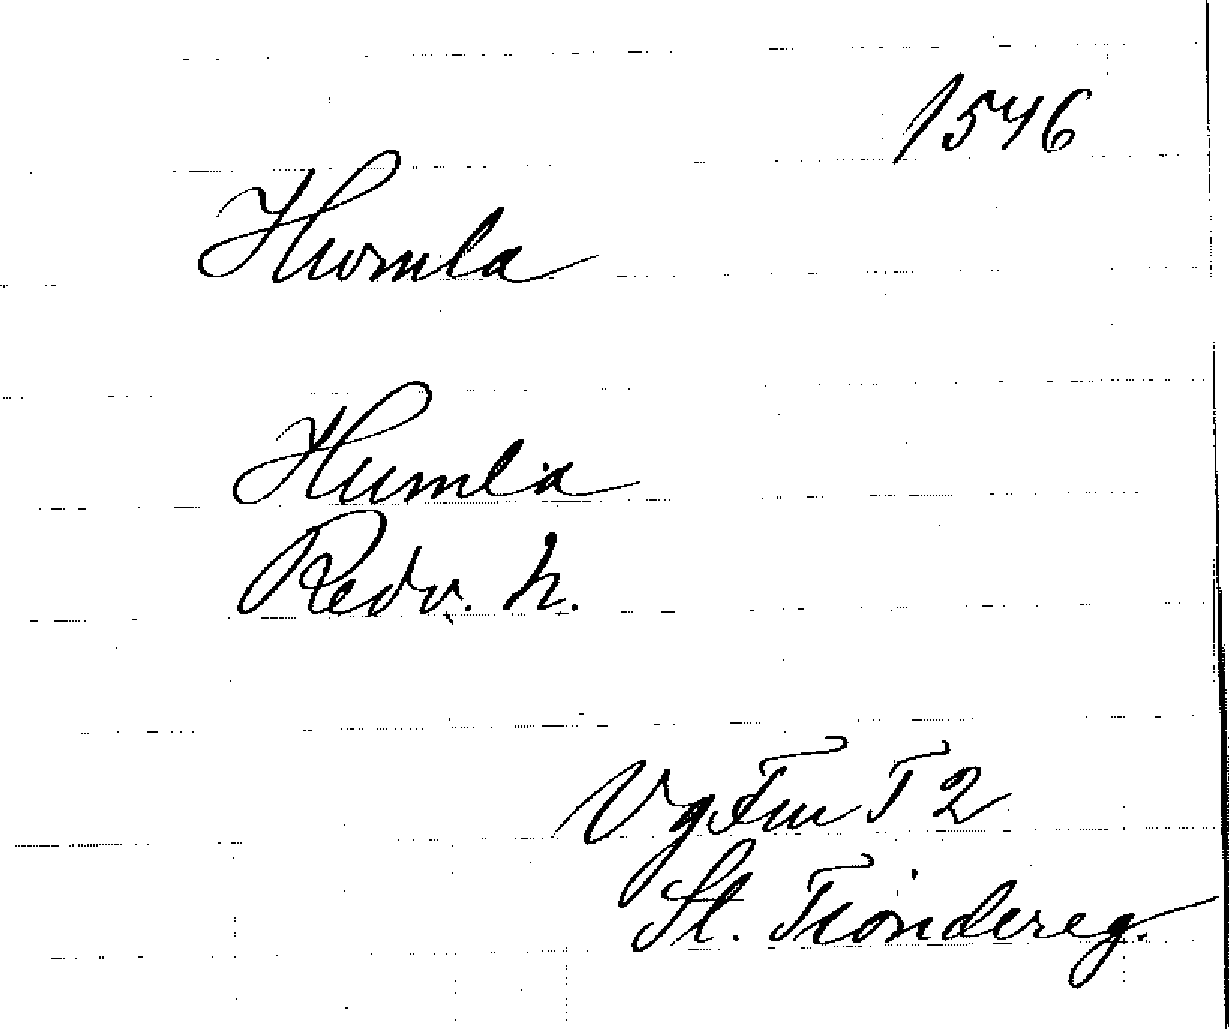 1546
Hwmla
Humla
Redv. h.
Vg Fm T 2
St. Tiondereg.